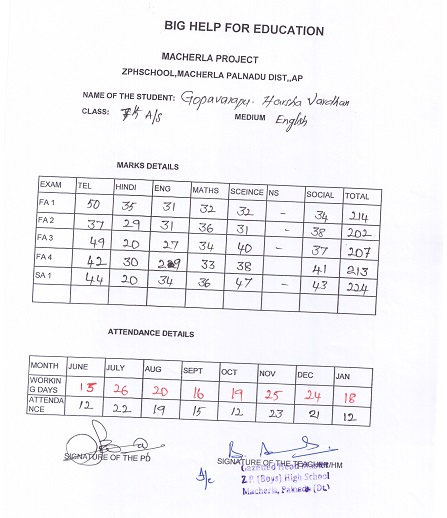 BIG HELP FOR EDUCATION
MACHERLA PROJECT
ZPHSCHOOL,MACHERLA PALNADU DIST,,AP
NAME OF THE STUDENT: Gopavarapu. Harsha Vardhan
CLASS: 7th A/s MEDIUM English
MARKS DETAILS
EXAM TEL HINDI ENG MATHS SCEINCE NS SOCIAL TOTAL
FA 1 50 35 31 32 32 - 34 214
FA 2 37 29 31 36 31 - 38 202
FA 3 49 20 27 34 40 - 37 207
FA 4 42 30 29 33 38 41 213
SA 1 44 20 34 36 47 - 43 224
ATTENDANCE DETAILS
MONTH JUNE JULY AUG SEPT OCT NOV DEC JAN
WORKIN
G DAYS 15 26 20 16 19 25 24 18
ATTENDA
NCE 12 22 19 15 12 23 21 12
SIGNATURE OF THE PD SIGNATURE OF THE TEACHER/HM
Gazetted Head Master
Z.P. (Boys) High School
Macherla, Palnadu (Dt.)